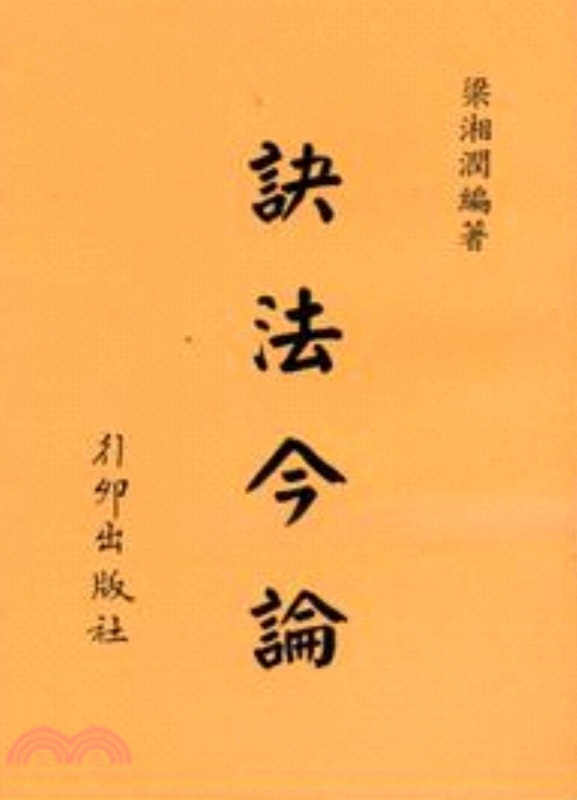 梁湘潤編著
訣法今論
行卯出版社